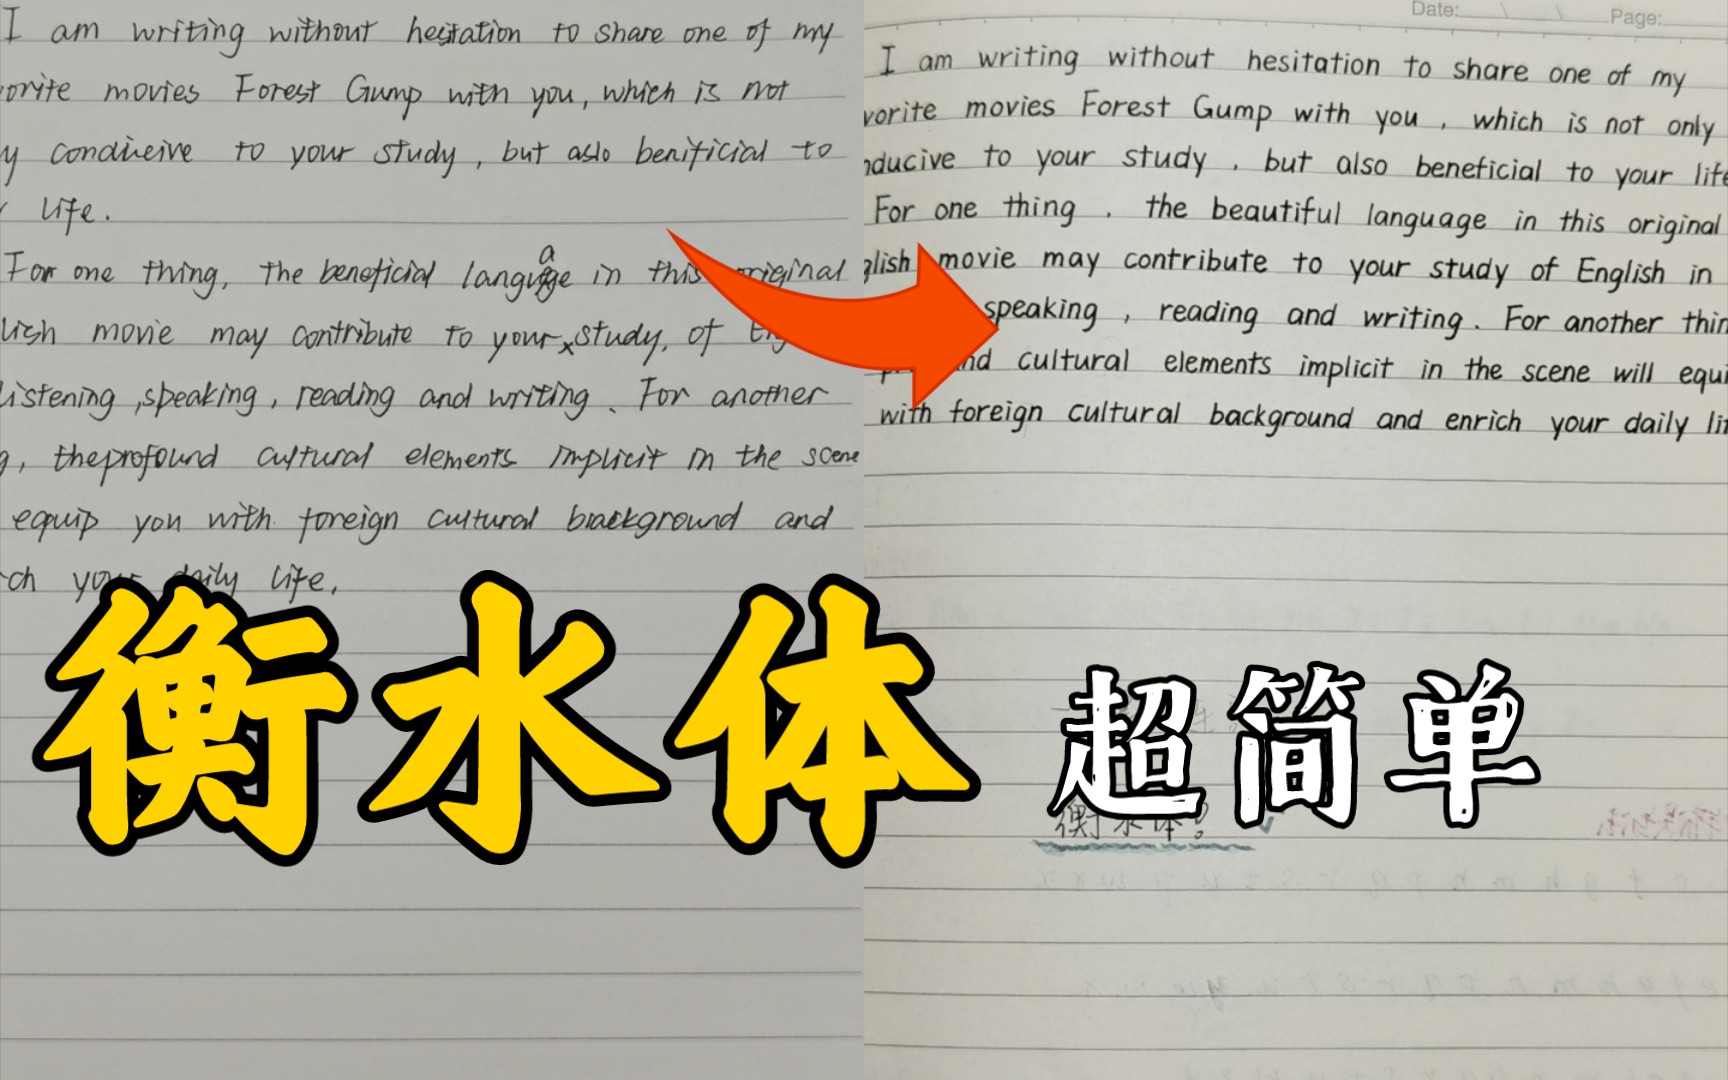 I am writing without hesitation to share one of my
orite movies Forest Gump with you, which is not
y conducive to your study, but aslo benificial to
life.
For one thing, the beneficial language in this original
lish movie may contribute to your study, of Eng
listening, speaking, reading and writing. For another
g, the profound cultural elements implicit in the scene
equip you with foreign cultural background and
ch your daily life.
Date: Page:
I am writing without hesitation to share one of my
vorite movies Forest Gump with you, which is not only
nducive to your study, but also beneficial to your life
For one thing, the beautiful language in this original
glish movie may contribute to your study of English in
speaking, reading and writing. For another thin
nd cultural elements implicit in the scene will equi
with foreign cultural background and enrich your daily lif
衡水体 超简单
衡水体?